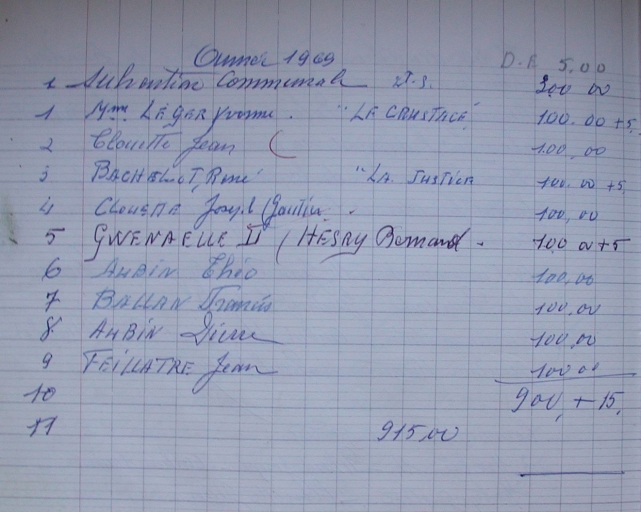 Année 1969 D.A 5.00
1 Subvention Communale 200 00
1 Mme LÉGER Yvonne. "LE CRUSTACÉ" 100.00 +5
2 Clouette Jean ( 100,00
3 BACHELOT, René "LA JUSTICE 100.00 +5
4 Clouette Joseph (Gautier. 100,00
5 GWENAELLE II (HESRY Bernard. 100 00+5
6 AUBIN Théo 100.00
7 BALLAN Francis 100,00
8 AUBIN Pierre 100,00
9 FEILLATRE Jean 100 00
10 900, + 15,
11 915,00